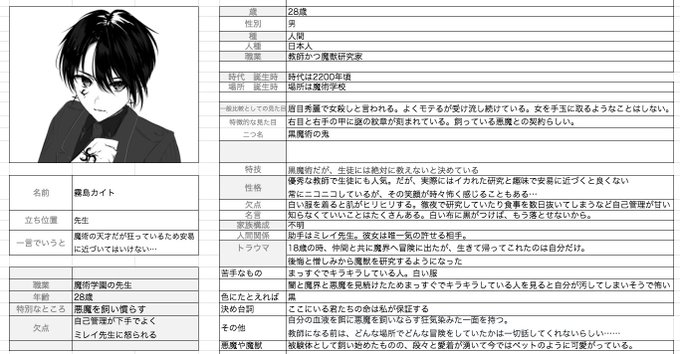 歳 28歳
性別 男
種 人間
人種 日本人
職業 教師かつ魔獣研究家
時代 誕生時 時代は2200年頃
場所 誕生時 場所は魔術学校
一般比較としての見た目 眉目秀麗で女殺しと言われる。よくモテるが受け流し続けている。女を手玉に取るようなことはしない。
特徴的な見た目 右目と右手の甲に謎の紋章が刻まれている。飼っている悪魔との契約らしい。
二つ名 黒魔術の鬼
特技 黒魔術だが、生徒には絶対に教えないと決めている
性格 優秀な教師で生徒にも人気。だが、実際にはイカれた研究と趣味で安易に近づくと良くない
常にニコニコしているが、その笑顔が時々怖く感じることもある…
欠点 白い服を着ると肌がヒリヒリする。徹夜で研究していたり食事を数日抜いてしまうなど自己管理が甘い
名言 知らなくていいことはたくさんある。白い布に黒がつけば、もう落とせないから。
家族構成 不明
人間関係 助手はミレイ先生。彼女は唯一気の許せる相手。
トラウマ 18歳の時、仲間と共に魔界へ冒険に出たが、生きて帰ってこれたのは自分だけ。
後悔と憎しみから魔獣を研究するようになった
苦手なもの まっすぐでキラキラしている人。白い服
闇と魔界と悪魔を見続けたためまっすぐでキラキラしている人を見ると自分が汚してしまいそうで怖い
色にたとえれば 黒
決め台詞 ここにいる君たちの命は私が保証する
その他 自分の血液を餌に悪魔を飼いならす狂気染みた一面を持つ。
教師になる前は、どんな場所でどんな冒険をしていたかは一切話してくれないらしい……
悪魔や魔獣 被験体として飼い始めたものの、段々と愛着が湧いて今ではペットのように可愛がっている。
名前 霧島カイト
立ち位置 先生
一言でいうと 魔術の天才だが狂っているため安易
に近づいてはいけない…
職業 魔術学園の先生
年齢 28歳
特別なところ 悪魔を飼い慣らす
欠点 自己管理が下手でよく
ミレイ先生に怒られる